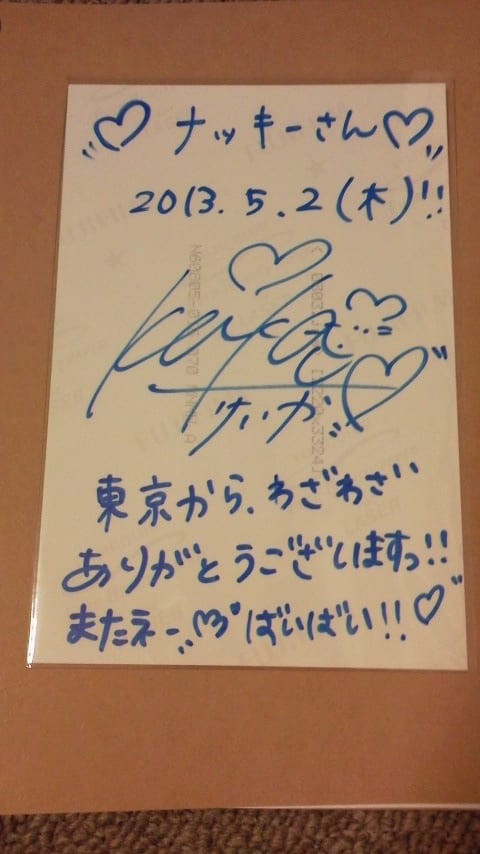 ♡ナッキーさん♡
2013.5.2(木)!!
東京から、わざわざ
ありがとうございますっ!!
またネー♡ばいばい!!♡